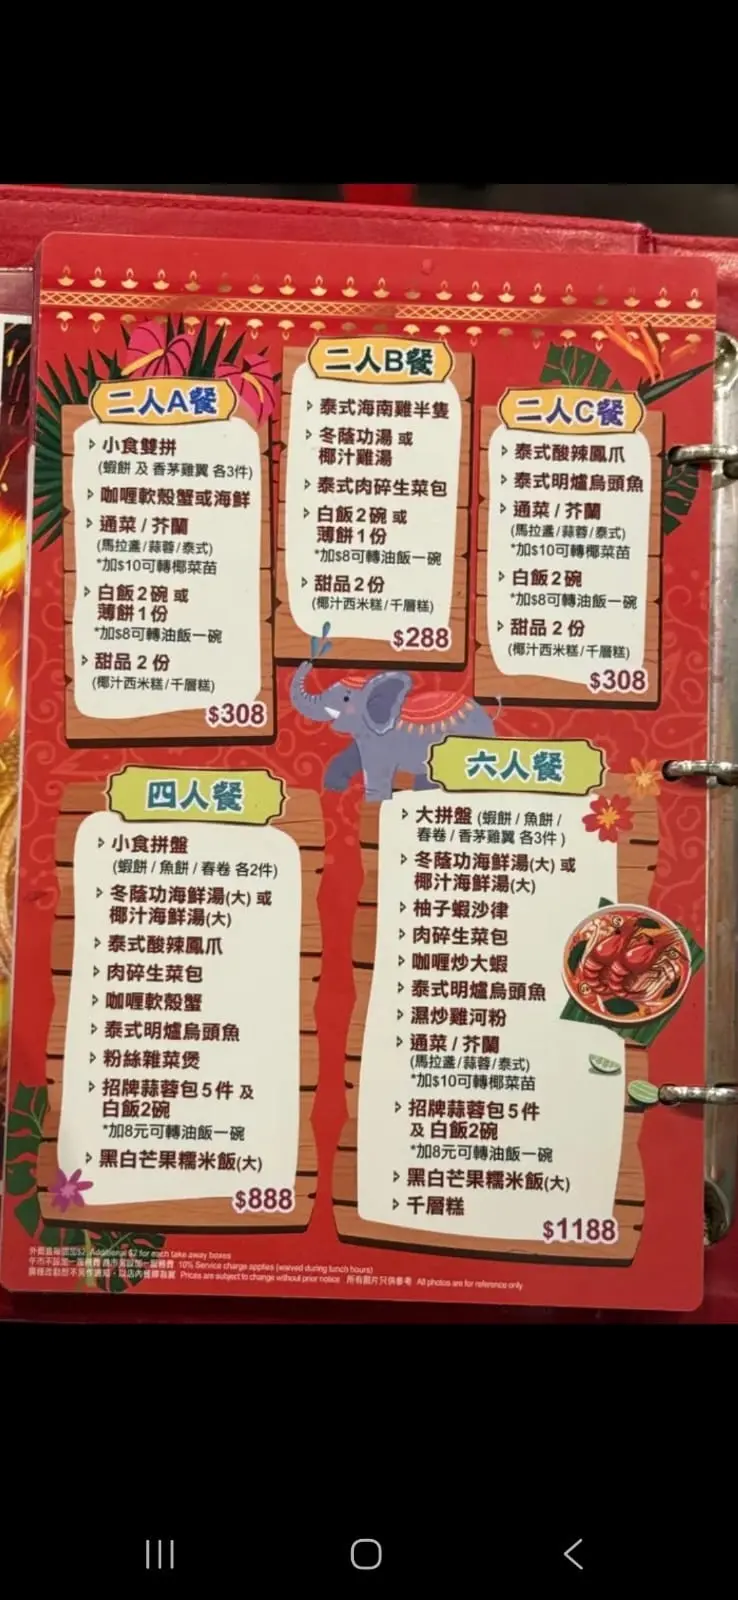 二人A餐
小食雙拼
(蝦餅 及 香茅雞翼 各3件)
咖喱軟殼蟹或海鮮
通菜 / 芥蘭
(馬拉盞/蒜蓉/泰式)
*加$10可轉椰菜苗
白飯2碗 或
薄餅1份
*加$8可轉油飯一碗
甜品 2 份
(椰汁西米糕/千層糕)
$308
二人B餐
泰式海南雞半隻
冬蔭功湯 或
椰汁雞湯
泰式肉碎生菜包
白飯2碗 或
薄餅1份
*加$8可轉油飯一碗
甜品2份
(椰汁西米糕/千層糕)
$288
二人C餐
泰式酸辣鳳爪
泰式明爐烏頭魚
通菜 / 芥蘭
(馬拉盞/蒜蓉/泰式)
*加$10可轉椰菜苗
白飯2碗
*加$8可轉油飯一碗
甜品 2 份
(椰汁西米糕/千層糕)
$308
四人餐
小食拼盤
(蝦餅 / 魚餅 / 春卷 各2件)
冬蔭功海鮮湯(大) 或
椰汁海鮮湯(大)
泰式酸辣鳳爪
肉碎生菜包
咖喱軟殼蟹
泰式明爐烏頭魚
粉絲雜菜煲
招牌蒜蓉包5件 及
白飯2碗
*加8元可轉油飯一碗
黑白芒果糯米飯(大)
$888
六人餐
大拼盤 (蝦餅 / 魚餅 /
春卷 / 香茅雞翼 各3件 )
冬蔭功海鮮湯(大) 或
椰汁海鮮湯(大)
柚子蝦沙律
肉碎生菜包
咖喱炒大蝦
泰式明爐烏頭魚
濕炒雞河粉
通菜 / 芥蘭
(馬拉盞/蒜蓉/泰式)
*加$10可轉椰菜苗
招牌蒜蓉包5件
及 白飯2碗
*加8元可轉油飯一碗
黑白芒果糯米飯(大)
千層糕
$1188
Additional $2 for each take away boxes
10% Service charge applies (waived during lunch hours)
Prices are subject to change without prior notice 所有圖片只供參考 All photos are for reference only